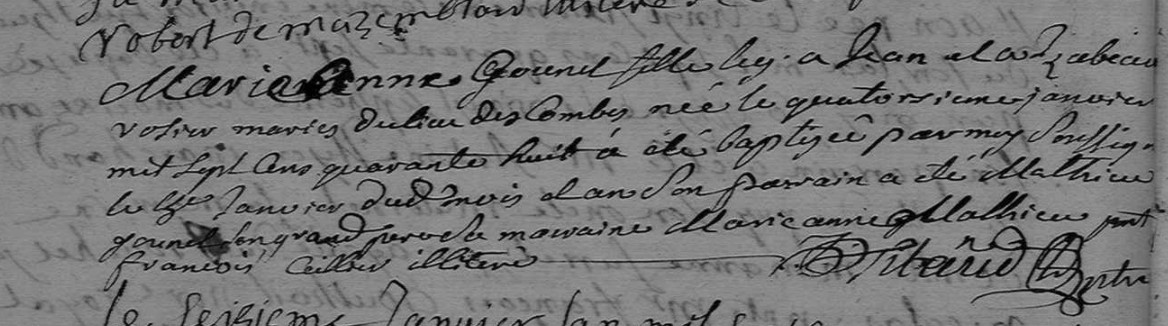 Robert de
Marie Anne Gounel fille leg. a Jean et a Izabeau
Vosier maries du lieu des Combes née le quatorsieme janvier
mil sept cens quarante huit a été baptisée par moy soussigné
le janvier dud mois et an son parrain a été Mathieu
gounel son grand pere sa marraine Marie anne Mathieu pnt
francois illiteré Ribaud ptre
le seisieme Janvier l'an mil